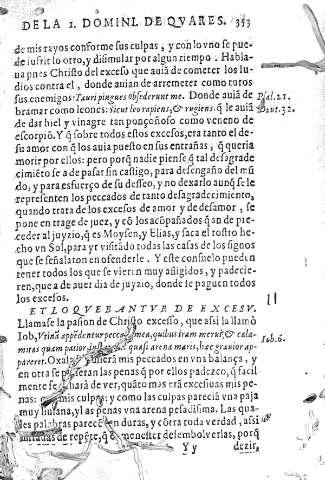 DE LA 1. DOMINI. DE QVARES. 353
de mis rayos conforme sus culpas, y con lo vno se pue-
de sufrir lo otro, y disimular por algun tiempo. Habla-
ua pues Christo del exceso que auiã de cometer los Iu-
dios contra el, donde auian de arremeter como toros
sus enemigos: Tauri pingues obsederunt me. Donde auiã de
Psal. 21.
bramar como leones: sicut leo rapiens, & rugiens. q̃ le auiã
Deut. 32.
de dar hiel y vinagre tan ponçoñoso como veneno de
escorpiõ. Y q̃ sobre todos estos excesos, era tanto el de-
su amor con q̃ los auia puesto en sus entrañas, q̃ queria
morir por ellos: pero porq̃ nadie piense q̃ tal desagrade-
cimiẽto se a de pasar sin castigo, para desengaño del mũ
do; y para esfuerço de su desseo, y no dexarlo aunq̃ se le
representen los peccados de tanto desagradecimiento,
quando trata de los excesos de amor y de desamor, se
pone en trage de juez, y cõ los acõpañados q̃ an de pre-
ceder al juyzio, q̃ es Moysen, y Elias, y saca el rostro he-
cho vn Sol, para yr visitãdo todas las casas de los signos
que se señalaron en ofenderle. Y este consuelo puedẽn
tener todos los que se vierẽn muy afligidos, y padecie-
ren, que a de auer dia de juyzio, donde le paguen todos
los excesos.
ET LOQVEBANTVR DE EXCESV.
Llamase la pasion de Christo excesso, que assi la llamò
Iob, Vtinã appederentur peccata mea, quibus iram merui, & cala-
Iob. 6.
mitas quam patior in quasi arena maris, hæc grauior ap-
pareret. Oxala pusierã mis peccados en vna balança, y
en otra se pesaran las penas q̃ por ellos padezco, q̃ facil-
mente se echará de ver, quãto mas erã excesiuas mis pe-
nas: mis culpas; y como las culpas pareciã vna paja
muy liuiana, y las penas vna arena pesadisima. Las qua-
les palabras parecen duras, y cõtra toda verdad, assi
miradas de repẽte, q̃ es menester desembolverlas, porq̃
Y y dezir,